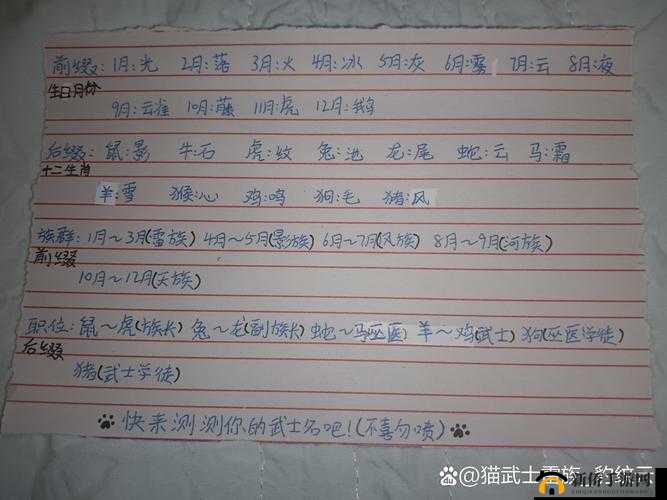 前缀: 1月:光 2月:落 3月:火 4月:冰 5月:灰 6月:雾 7月:云 8月:夜
生日月份
9月:云雀 10月:藤 11月:虎 12月:鹅
后缀: 鼠:影 牛:石 虎:纹 兔:池 龙:尾 蛇:云 马:霜
十二生肖
羊:雪 猴:心 鸡:鸣 狗:毛 猪:风
族群: 1月～3月(雷族) 4月～5月(影族) 6月～7月(风族) 8月～9月(河族)
前缀
10月～12月(天族)
职位: 鼠～虎(族长) 兔～龙(副族长) 蛇～马(巫医) 羊～鸡(武士) 狗(巫医学徒)
后缀
猪(武士学徒)
快来测测你的武士名吧!(不喜勿喷)
@猫武士雷族-豹纹云
新侨手游网